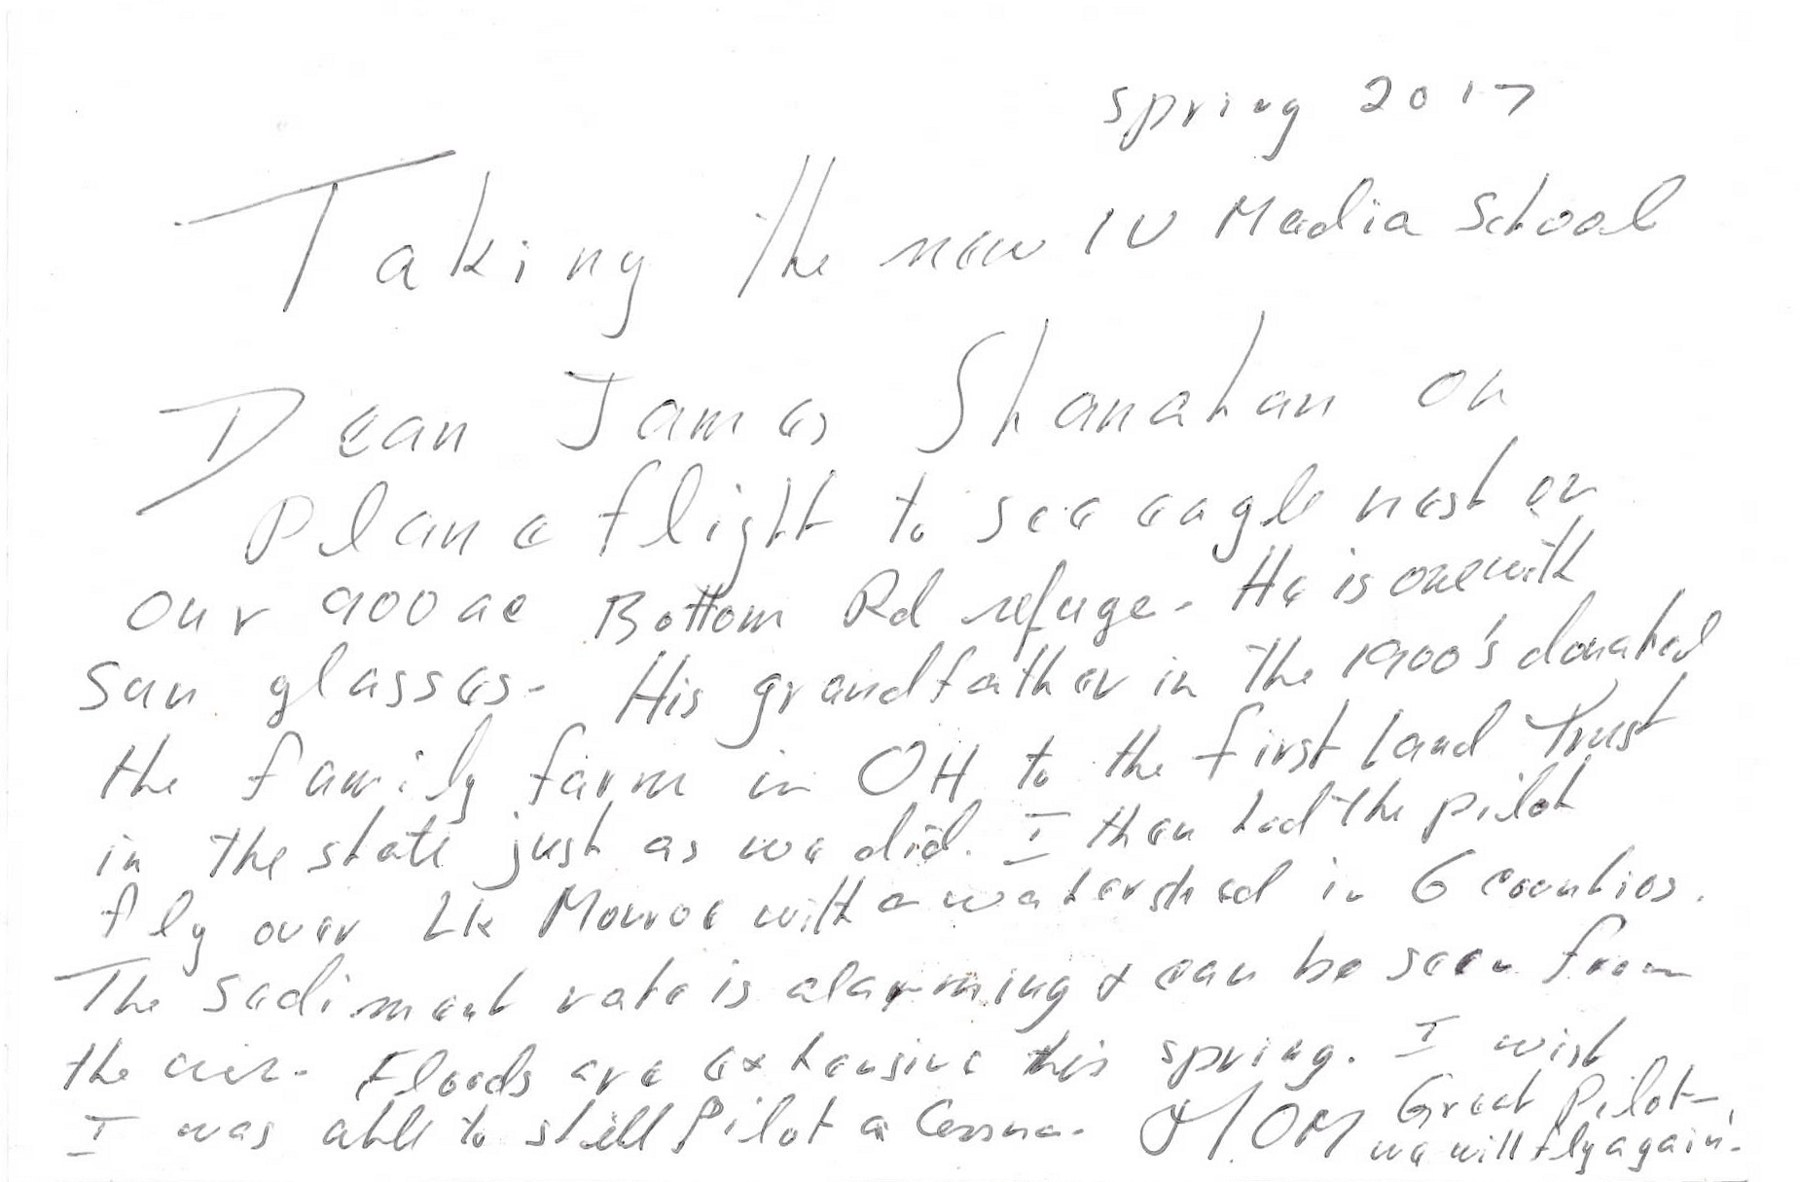 spring 2017
Taking the new IU Media School
Dean James Shanahan on
plane flight to see eagle nest on
our 900 ac Bottom Rd refuge - He is one with
sun glasses - His grandfather in the 1900's donated
the family farm in OH to the first land Trust
in the state just as we did. I then had the pilot
fly over Lk Monroe with a watershed in 6 counties.
The sediment rate is alarming & can be seen from
the air - Floods are extensive this spring. I wish
I was able to still pilot a Cessna -
Great Pilot -
we will fly again.